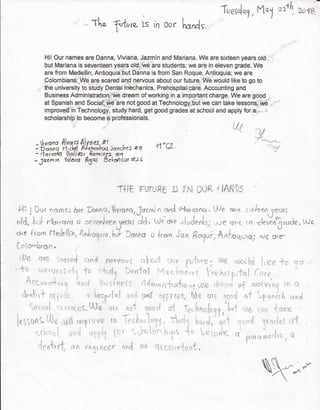 Tuesday, May 22th 2018
- The future IS in our hands.
Hi! Our names are Danna, Viviana, Jazmin and Mariana. We are sixteen years old,
but Mariana is seventeen years old; we are students; we are in eleven grade. We
are from Medellin, Antioquia;but Danna is from San Roque, Antioquia; we are
Colombians. We are scared and nervous about our future. We would like to go to
the university to study Dental mechanics, Prehospital care, Accounting and
Business Administration; we dream of working in a important charge. We are good
at Spanish and Social; we are not good at Technology;but we can take lessons, we
improved in Technology, study hard, get good grades at school and apply for a
scholarship to become a professionals.
- Viviana Alvarez #1
- Danna Sanchez #8
- Mariana Ramirez
- Jazmin Betancur #26
11°C2.
THE FUTURE IS IN OUR HANDS
Hi! Our names are Danna, Viviana, Jazmin and Mariana. We are sixteen years
old, but Mariana is seventeen years old. We are students; we are in eleven grade. We
are from Medellin, Antioquia, but Danna is from San Roque, Antioquia; we are
Colombian.
We are scared and nervous about our future. we would like to go
to university to study Dental Mechanics Prehospital Care,
Accounting and Business Administration, we dream of working in a
dentist office, a hospital and offices. We are good at Spanish and
Social sciences. We are not good at Technology, but we can take
lessons. We will improve in Technology, study hard, get good grades at
school and apply for scholarships to become a paramedic, a
dentist, an engineer and an accountant.